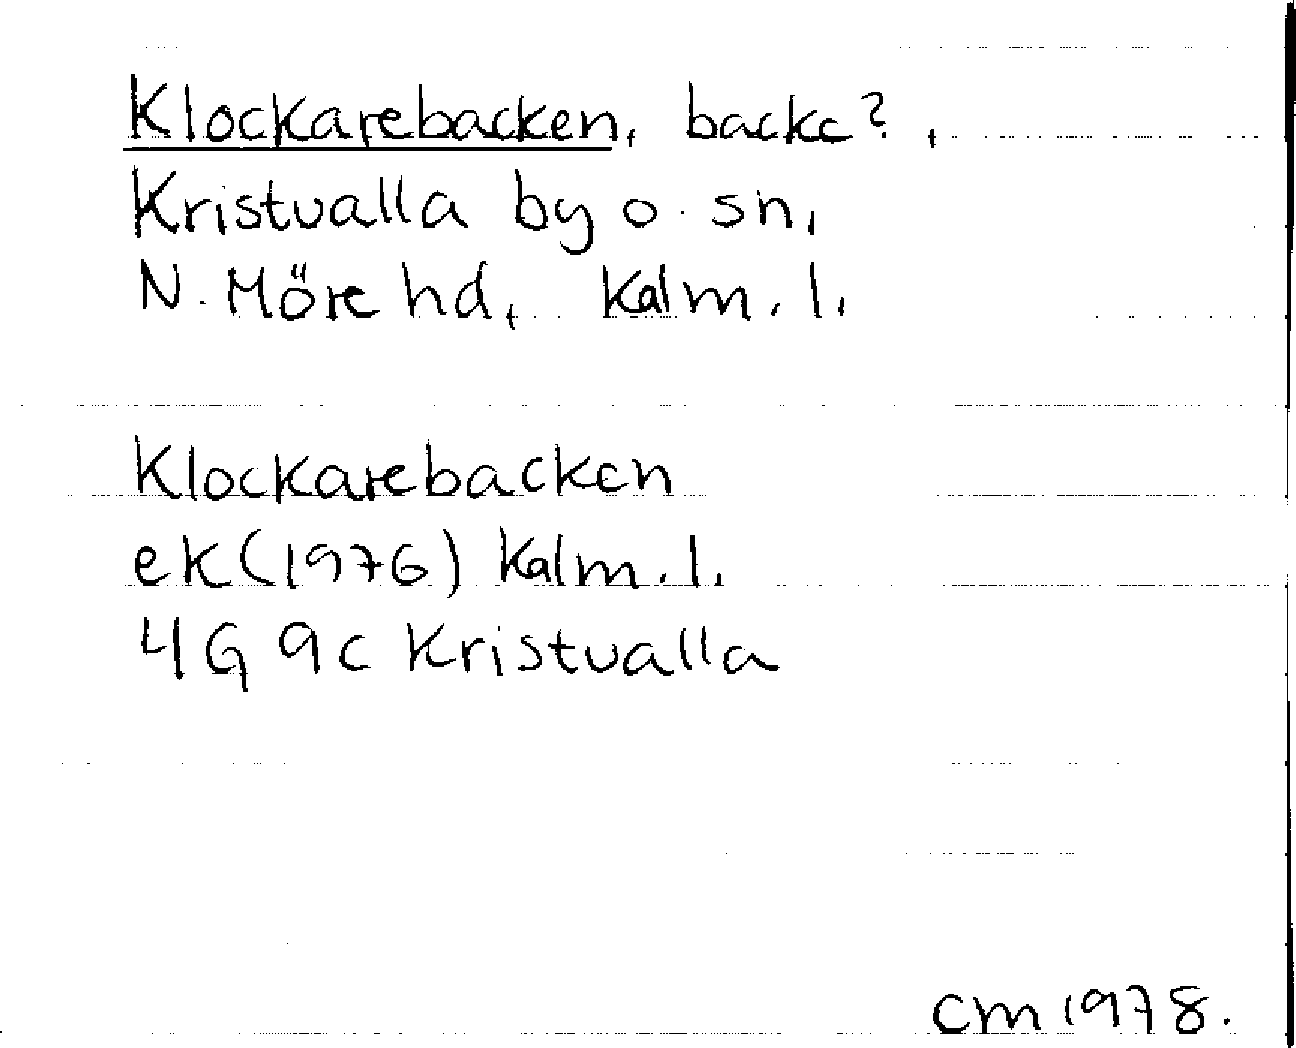 Klockarebacken, backe?,
Kristvalla by o. sn,
N. Möre hd, Kalm. l.
Klockarebacken
ek (1976) Kalm. l.
4G 9c Kristvalla
CM 1978.